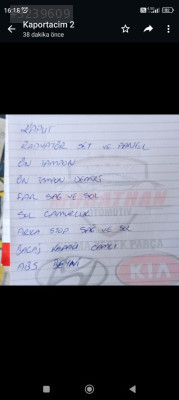 16:18
Kaportacim 2
38 dakika önce
KAPUT
RADYATÖR SET VE PANEL
ÖN TAMPON
ÖN TAMPON DEMİRİ
FAR SAĞ VE SOL
SOL ÇAMURLUK
ARKA STOP SAĞ VE SOL
BAGAJ KAPAĞI CAMLI
ABS BEYNİ
OTOMOTİV
K PARÇA
KIA